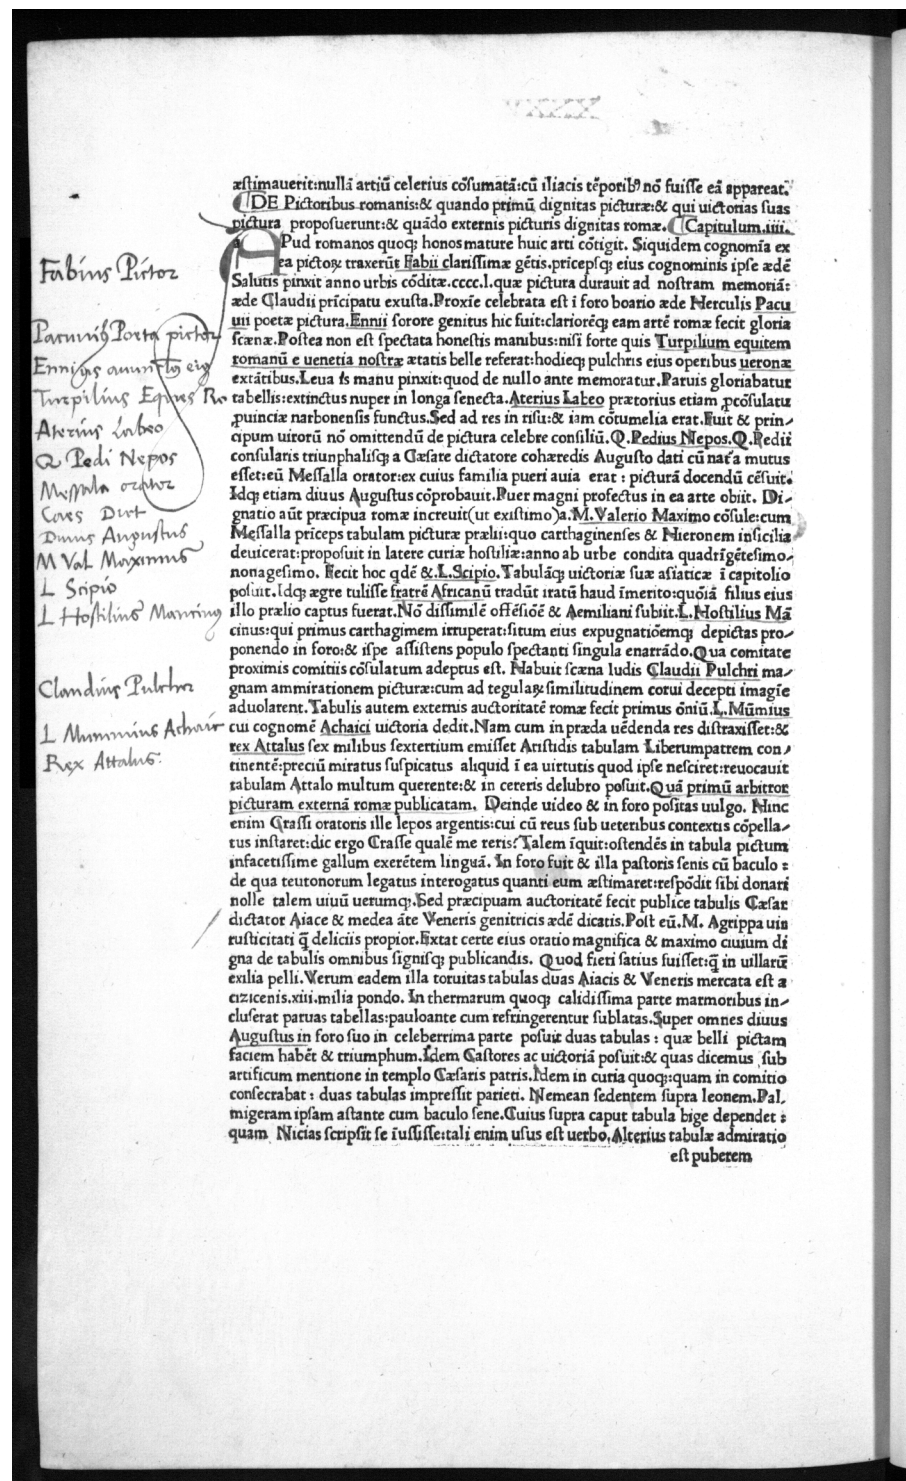 æstimauerit:nullã artiũ celerius cõsumatã:cũ iliacis tẽporibꝰ nõ fuisse eã appareat.
DE Pictoribus romanis:& quando primũ dignitas picturæ:& qui uictorias suas
pictura proposuerunt:& quãdo externis picturis dignitas romæ. Capitulum.iiii.
APud romanos quoqꝫ honos mature huic arti cõtigit. Siquidem cognomĩa ex
ea pictoꝝ traxerũt Fabii clarissimæ gẽtis.pricepsqꝫ eius cognominis ipse ædẽ
Salutis pinxit anno urbis cõditæ.cccc.l.quæ pictura durauit ad nostram memoriã:
æde Claudii prĩcipatu exusta.Proxĩe celebrata est ĩ foro boario æde Herculis Pacu
uii poetæ pictura.Ennii sorore genitus hic fuit:clariorẽqꝫ eam artẽ romæ fecit gloria
scænæ.Postea non est spectata honestis manibus:nisi forte quis Turpilium equitem
romanũ e uenetia nostræ ætatis belle referat:hodieqꝫ pulchris eius operibus ueronæ
extãtibus.Leua is manu pinxit:quod de nullo ante memoratur.Paruis gloriabatur
tabellis:extinctus nuper in longa senecta.Aterius Labeo prætorius etiam ꝓcõsulatu
ꝓuinciæ narbonensis functus.Sed ad res in risu:& iam cõtumelia erat.Fuit & prin-
cipum uirorũ nõ omittendũ de pictura celebre consiliũ.Q.Pedius Nepos.Q.Pedii
consularis triunphalisqꝫ a Cæsare dictatore cohæredis Augusto dati cũ nat'a mutus
esset:eũ Messalla orator:ex cuius familia pueri auia erat : picturã docendũ cẽsuit.
Idqꝫ etiam diuus Augustus cõprobauit.Puer magni profectus in ea arte obiit. Di-
gnatio aũt præcipua romæ increuit(ut existimo)a.M.Valerio Maximo cõsule:cum
Messalla prĩceps tabulam picturæ prælii:quo carthaginenses & Hieronem insicilia
deuicerat:proposuit in latere curiæ hostiliæ:anno ab urbe condita quadrĩgẽtesimo-
nonagesimo. Fecit hoc qdẽ &.L.Scipio.Tabulãqꝫ uictoriæ suæ asiaticæ ĩ capitolio
posuit.Idqꝫ ægre tulisse fratrẽ Africanũ tradũt iratũ haud ĩmerito:quõiã filius eius
illo prælio captus fuerat.Nõ dissimilẽ offẽsiõẽ & Aemiliani subiit.L.Hostilius Mã
cinus:qui primus carthagimem irruperat:situm eius expugnatiõemqꝫ depictas pro-
ponendo in foro:& ispe assistens populo spectanti singula enarrãdo.Qua comitate
proximis comitiis cõsulatum adeptus est. Habuit scæna ludis Claudii Pulchri ma-
gnam ammirationem picturæ:cum ad tegulaꝝ similitudinem corui decepti imagĩe
aduolarent.Tabulis autem externis auctoritatẽ romæ fecit primus õniũ.L.Mũmius
cui cognomẽ Achaici uictoria dedit.Nam cum in præda uẽdenda res distraxisset:&
rex Attalus sex milibus sextertium emisset Aristidis tabulam Liberumpatrem con-
tinentẽ:preciũ miratus suspicatus aliquid ĩ ea uirtutis quod ipse nesciret:reuocauit
tabulam Attalo multum querente:& in cereris delubro posuit.Quã primũ arbitror
picturam externã romæ publicatam. Deinde uideo & in foro positas uulgo. Hinc
enim Crassi oratoris ille lepos argentis:cui cũ reus sub ueteribus contextis cõpella-
tus instaret:dic ergo Crasse qualẽ me reris?Talem ĩquit:ostendẽs in tabula pictum
infacetissime gallum exerẽtem linguã. In foro fuit & illa pastoris senis cũ baculo :
de qua teutonorum legatus interogatus quanti eum æstimaret:respõdit sibi donari
nolle talem uiuũ uerumqꝫ.Sed præcipuam auctoritatẽ fecit publice tabulis Cæsar
dictator Aiace & medea ãte Veneris genitricis ædẽ dicatis.Post eũ.M. Agrippa uir
rusticitati q̃ deliciis propior.Extat certe eius oratio magnifica & maximo ciuium di
gna de tabulis omnibus signisqꝫ publicandis. Quod fieri satius fuisset:q̃ in uillarũ
exilia pelli.Verum eadem illa toruitas tabulas duas Aiacis & Veneris mercata est a
cizicenis.xiii.milia pondo. In thermarum quoqꝫ calidissima parte marmoribus in-
cluserat paruas tabellas:pauloante cum refringerentur sublatas.Super omnes diuus
Augustus in foro suo in celeberrima parte posuit duas tabulas : quæ belli pictam
faciem habẽt & triumphum.Idem Castores ac uictoriã posuit:& quas dicemus sub
artificum mentione in templo Cæsaris patris.Idem in curia quoqꝫ:quam in comitio
consecrabat : duas tabulas impressit parieti. Nemean sedentem supra leonem.Pal.
migeram ipsam astante cum baculo sene.Cuius supra caput tabula bige dependet :
quam Nicias scripsit se ĩussisse:tali enim usus est uerbo.Alterius tabulæ admiratio
est puberem
Fabius Pictor
Pacuuiꝰ Poeta pictor
Ennius auunclꝰ eiꝰ
Turpilius Eques Ro
Aterius Labeo
Q Pedi Nepos
Messala orator
Caes Dict
Diuus Augustus
M Val Maximus
L Scipio
L Hostilius Mancinꝰ
Claudius Pulcher
L Mummius Achaic
Rex Attalus.